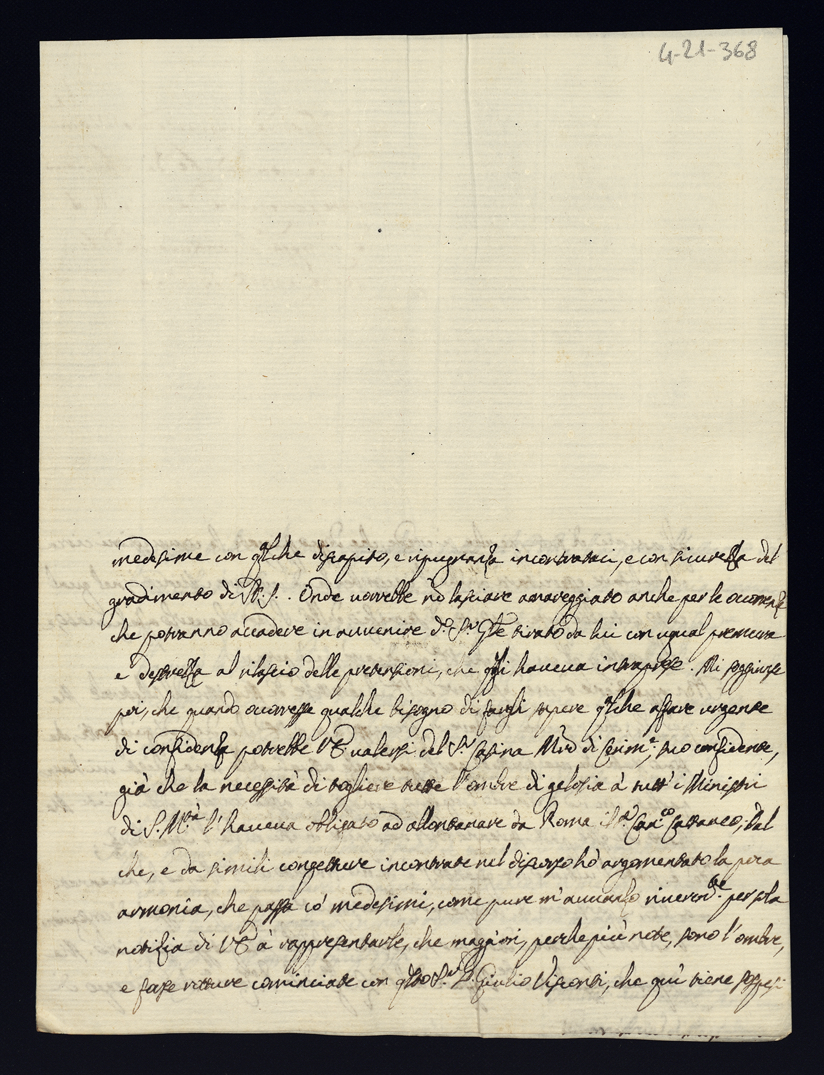 4-21-368
medesime con qlche discapito, e ripugnanza incontrataci, e con sicurezza del
gradimento di V. S. . Onde vorrebbe nõ lasciare amareggiato anche per le occorrenze
che potranno accadere in avvenire d.º S.r Gle tirato da lui con ugual premura
e destrezza al rilascio delle pretensioni, che qsti haueua intraprese. Mi soggiunse
poi, che quando occorresse qualche bisogno di fargli sapere qlche affare urgente
di confidenza potrebbe VE valersi del S.r Cassina Mro di Cerim.e, suo confidente,
già che la necessità di togliere tutte l'ombre di gelosia à tutt'i Ministri
di S. M.tà l'haueua obligato ad allontanare da Roma il S.r Can.co Cattaneo; Dal
che, e da simili congetture incontrate nel discorso hò argomentato la poca
armonia, che passa cõ medesimi, come pure m'auuanzo riueren.te per sola
notizia di VE à rappresentarle, che maggiori, perche più note, sono l'ombre,
e forse rotture cominciate con qsto S.r D. Giulio Visconti, che quì viene